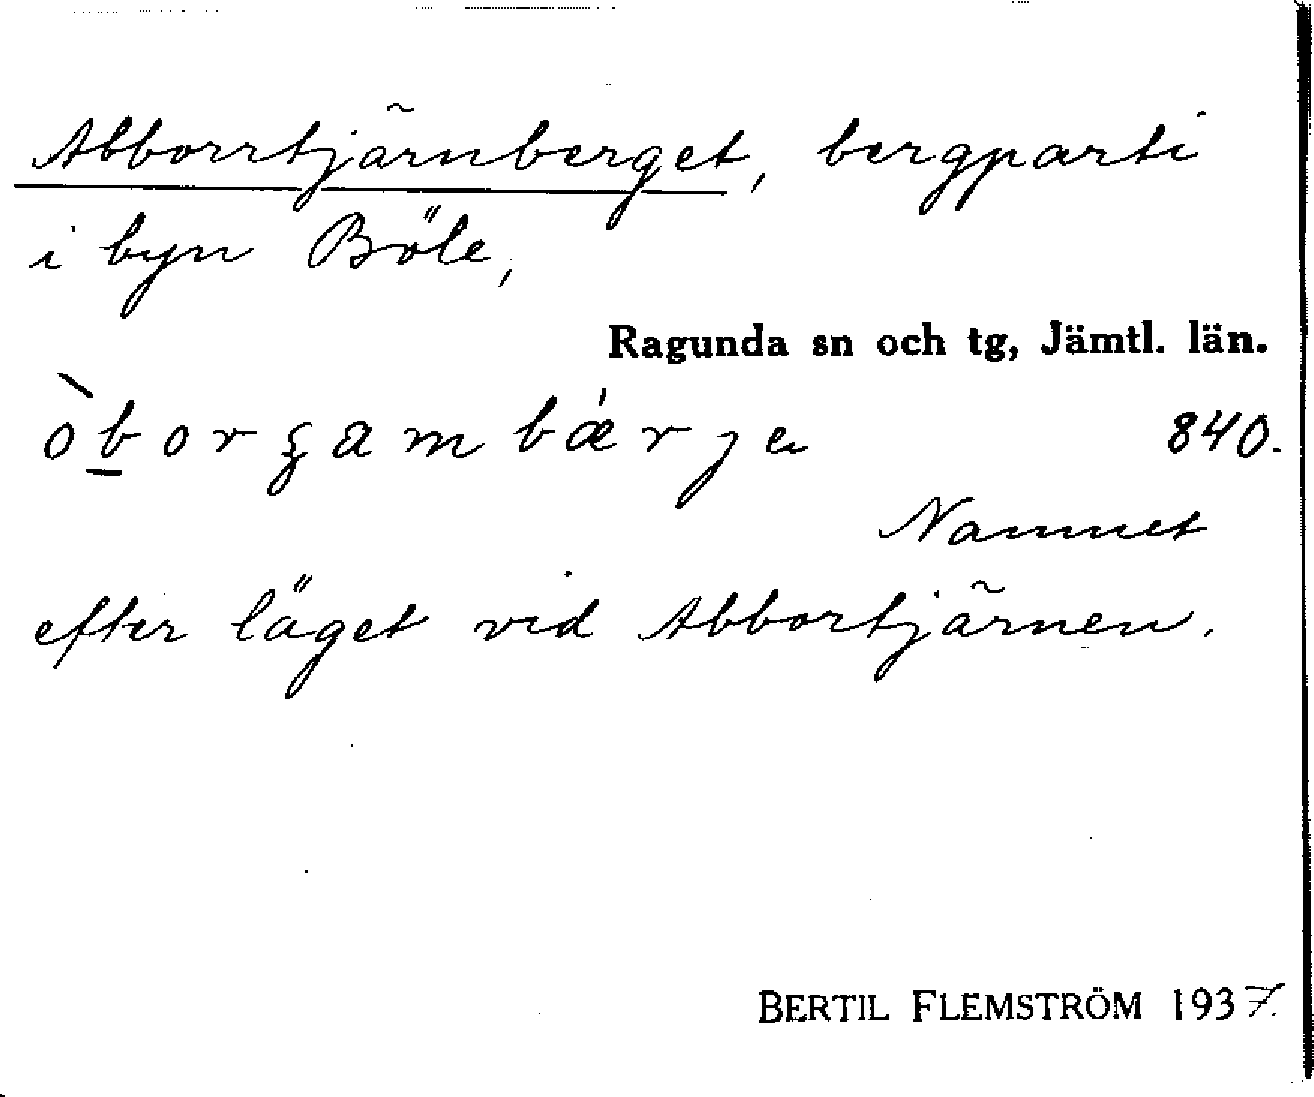 Abborrtjärnberget, bergparti
i byn Böle,
Ragunda sn och tg, Jämtl. län.
840.
Namnet
efter läget vid Abbortjärnen.
BERTIL FLEMSTRÖM 1937.